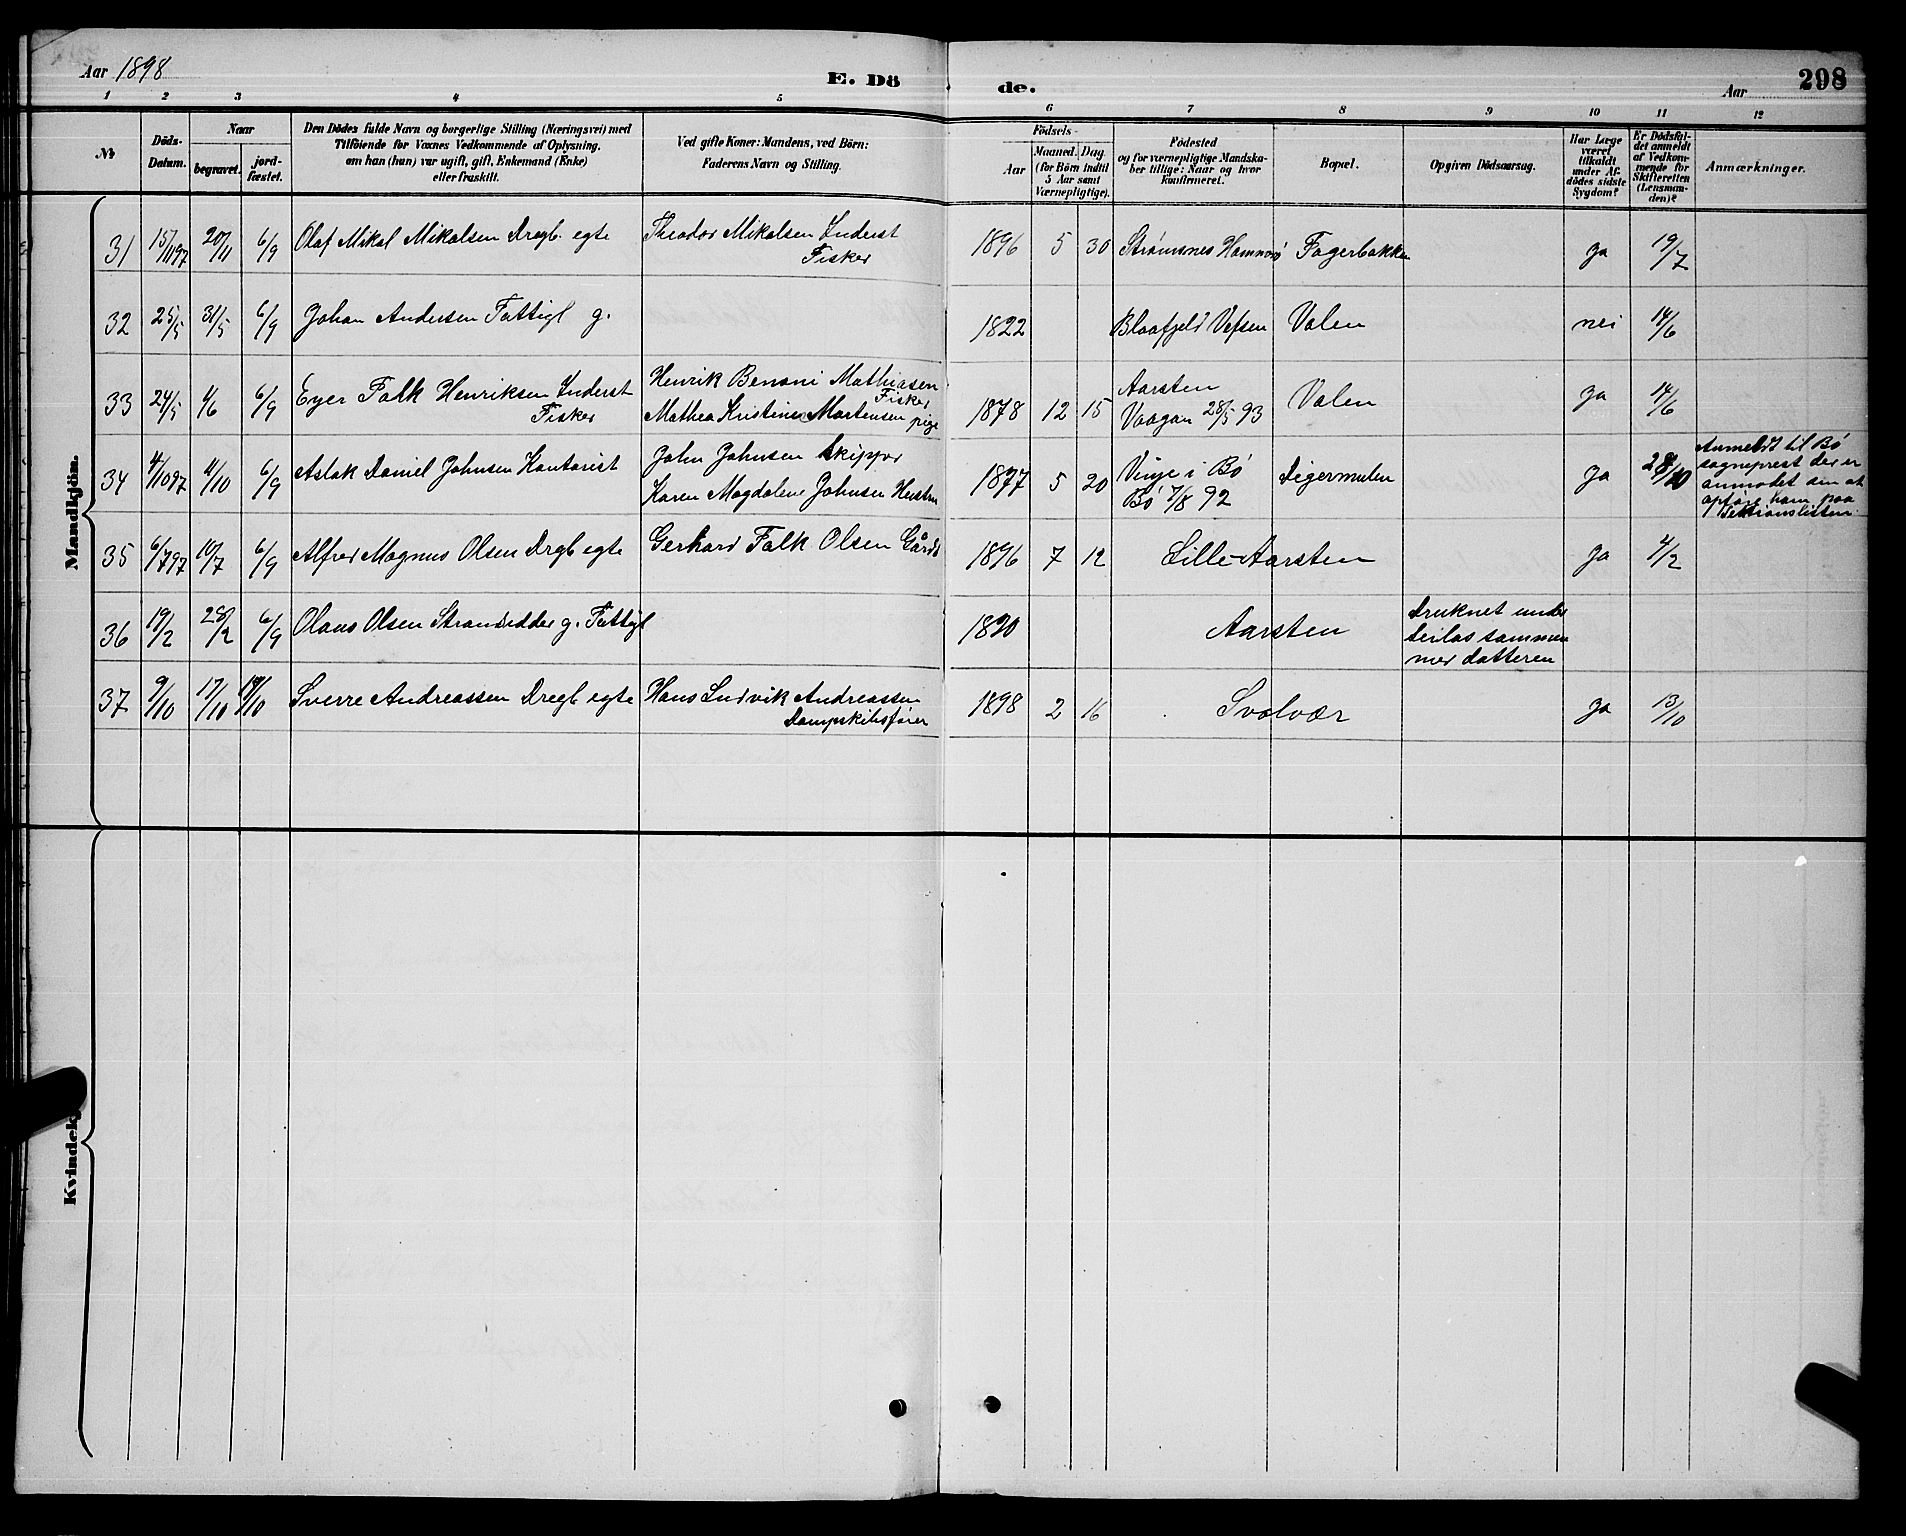 Aar 1898
E. Dö
de.
Aar
298
1 2 3 4 5 6 7 8 9 10 11 12
No
Döds-Datum.
Naar
begravet.
jord-fæstet.
Den Dödes fulde Navn og borgerlige Stilling (Næringsvei) med
Tilföiende for Voxnes Vedkommende af Oplysning,
om han (hun) var ugift, gift, Enkemand (Enke)
eller fraskilt.
Ved gifte Koner: Mandens, ved Börn:
Faderens Navn og Stilling.
Födsels-
Aar
Maaned. Dag
(for Börn indtil
5 Aar samt
Værnepligtige).
Födested
og for værnepligtige Mandska-
ber tillige: Naar og hvor
konfirmeret.
Bopæl.
Opgiven Dödsaarsag.
Har Læge
været
tilkaldt
under Af-
dödes sidste
Sygdom?
Er Dödsfal-
det anmeldt
af Vedkom-
mende for
Skifteretten
(Lensman-
den)?
Anmærkninger.
Mandkjön.
31 15/11 97 20/11 6/9 Olaf Mikal Mikalsen Dregb. egte Theodor Mikalsen Inderst
Fisker
1896 5 30 Strømsnes Hamnø Fagerbakken ja 19/7
32 25/5 31/5 6/9 Johan Andersen Fattigl g. 1822 Blaafjeld Vefsen Valen nei 14/6
33 24/5 4/6 6/9 Eyer Falk Henriksen Inderst
Fisker
Henrik Benoni Mathiasen
Fisker
Mathea Kristine Martensen pige
1878 12 15 Aarsten
Vaagan 28/5 93
Valen ja 14/6
34 4/10 97 11/10 6/9 Aslak Daniel Johnsen Kontorist
John Johnsen Skipper
Karen Magdalene Johnsen Hustru
1877 5 20 Vinje i Bø
Bø 7/8 92
Digermulen ja 28/10
Anmeldt til Bø
sogneprest der er
anmodet om at
opføre ham paa
35 6/7 97 10/7 6/9 Alfred Magnus Olsen Drgb egte Gerhard Falk Olsen Gårdb
1896 7 12 Lille-Aarsten ja 4/2
36 19/2 28/2 6/9 Olaus Olsen Strandsidder g. Fattigl
1820 Aarsten
Druknet under
seilas sammen
med datteren
37 9/10 17/10 19/10 Sverre Andreassen Dregb egte Hans Ludvik Andreassen
Dampskibsfører
1898 2 16 Svolvær ja 13/10
Kvindek